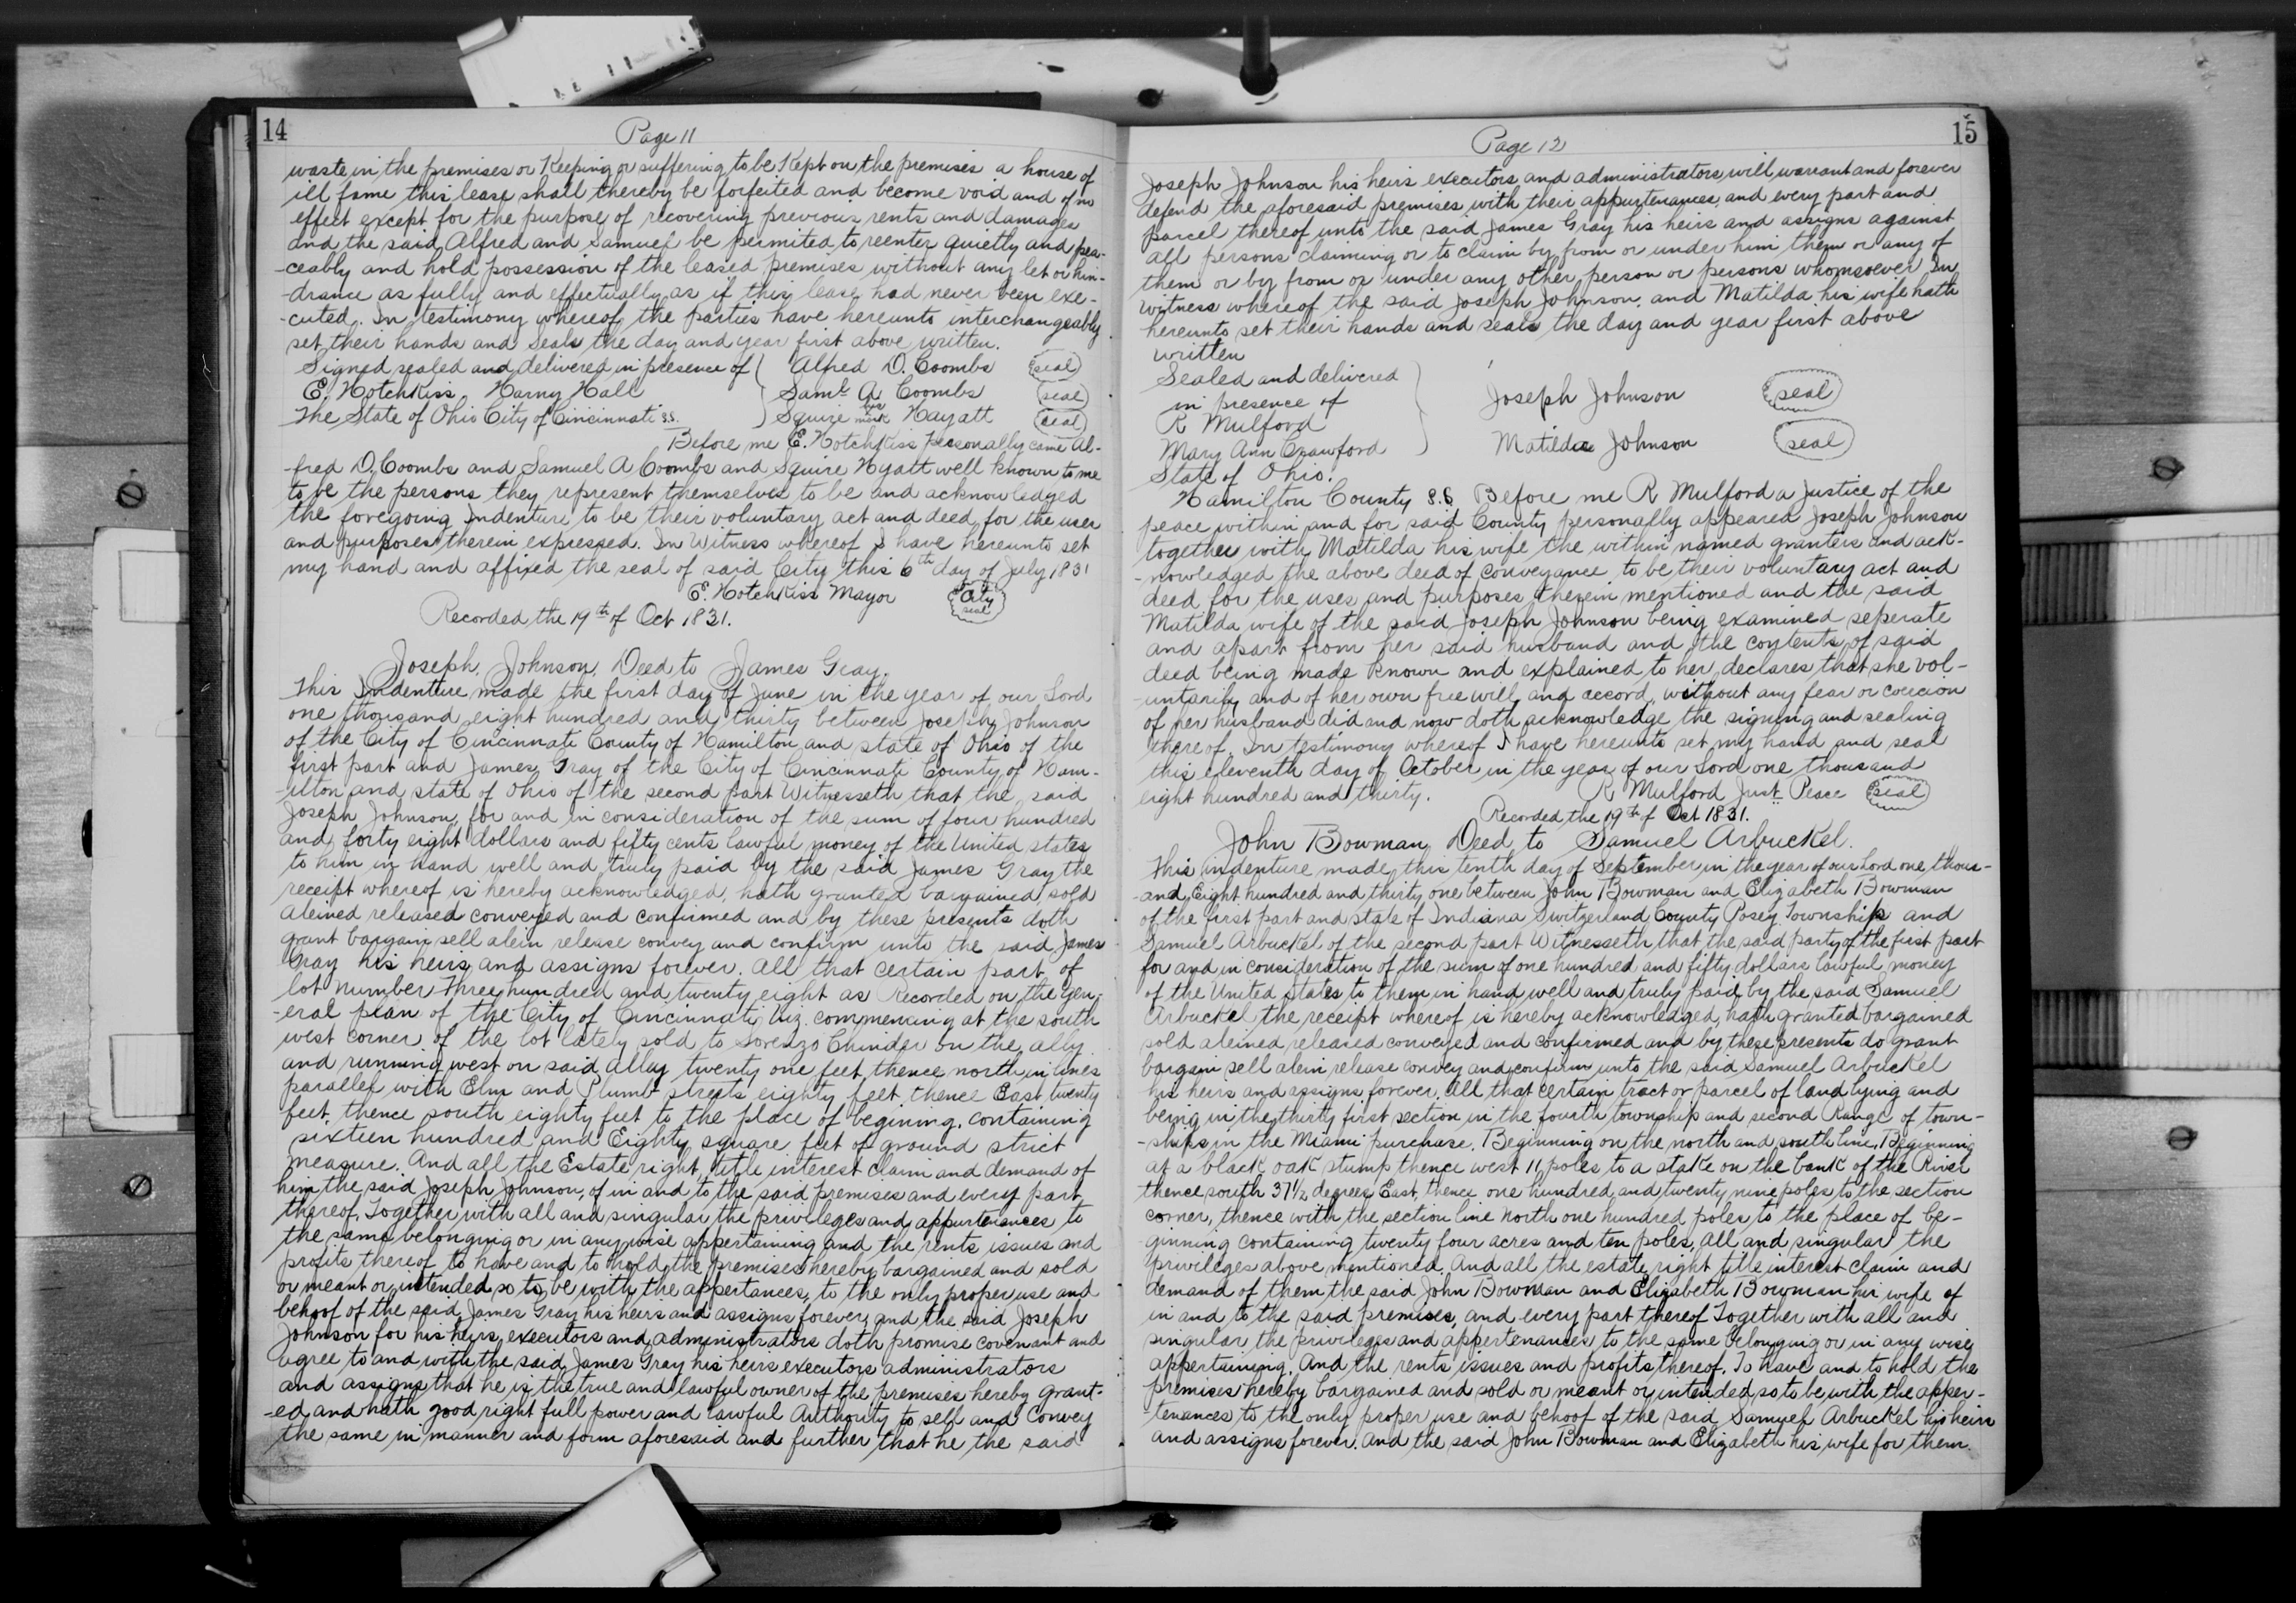 14
Page 11
waste in the premises or Keeping or suffering to be Kept on the premises a house of
ill fame this lease shall thereby be forfeited and become void and of no
effect except for the purpose of recovering previous rents and damages
and the said Alfred and Samuel be permited to reenter quietly and pea-
-ceably and hold possession of the leased premises without any let or hin-
-drance as fully and effectually as if this lease had never been exe-
-cuted. In testimony whereof the parties have hereunto interchangeably
set their hands and seals the day and year first above written.
Signed sealed and delivered in presence of Alfred D. Coombs seal
E. HotchKiss Harny Hall Saml. A Coombs seal
The State of Ohio City of Cincinnati s.s. Squire his mark Hayatt seal
Before me E. HotchKiss personally came Al-
-fred D. Coombs and Samuel A Coombs and Squire Hyatt well known to me
to be the persons they represent themselves to be and acknowledged
the foregoing Indenture to be their voluntary act and deed for the uses
and purposes therein expressed. In Witness whereof I have hereunto set
my hand and affixed the seal of said City this 6th day of July 1831
E. HotchKiss Mayor City seal
Recorded the 19th of Oct 1831.
Joseph Johnson Deed to James Gray.
This Indenture made the first day of June in the year of our Lord
one thousand eight hundred and thirty between Joseph Johnson
of the City of Cincinnati County of Hamilton and state of Ohio of the
first part and James Gray of the City of Cincinnati County of Ham-
-ilton and state of Ohio of the second part Witnesseth that the said
Joseph Johnson for and in consideration of the sum of four hundred
and forty eight dollars and fifty cents lawful money of the United states
to him in hand well and truly paid by the said James Gray the
receipt whereof is hereby acknowledged, hath granted bargained sold
aleined released conveyed and confirmed and by these presents doth
grant bargain sell alein release convey and confirm unto the said James
Gray his heirs and assigns forever. All that certain part of
lot number three hundred and twenty eight as Recorded on the gen-
-eral plan of the City of Cincinnati Viz. commencing at the south
west corner of the lot lately sold to Lorenzo Chinder on the ally
and running west on said alley twenty one feet, thence north in lines
parallel with Elm and Plumb streets eighty feet thence East twenty
feet, thence south eighty feet to the place of begining. containing
sixteen hundred and Eighty square feet of ground strict
measure. And all the Estate right, title interest claim and demand of
him the said Joseph Johnson, of in and to the said premises and every part
thereof. Together with all and singular the privileges and appurtenances to
the same belonging or in any wise appertaining and the rents issues and
profits thereof to have and to hold the premises hereby bargained and sold
or meant or intended so to be with the appertances, to the only proper use and
behoof of the said James Gray his heirs and assigns forever and the said Joseph
Johnson for his heirs, executors and administrators doth promise covenant and
agree to and with the said James Gray his heirs executors administrators
and assigns that he is the true and lawful owner of the premises hereby grant-
-ed and hath good right full power and lawful Authority to sell and convey
the same in manner and form aforesaid and further that he the said
15
Page 12
Joseph Johnson his heirs executors and administrators will warrant and forever
defend the aforesaid premises with their appurtenances and every part and
parcel thereof unto the said James Gray his heirs and assigns against
all persons claiming or to claim by from or under him them or any of
them or by from or under any other person or persons whomsoever In
witness whereof the said Joseph Johnson and Matilda his wife hath
hereunto set their hands and seals the day and year first above
written
Sealed and delivered
in presence of Joseph Johnson seal
R Mulford
Mary Ann Crawford Matilda Johnson seal
State of Ohio.
Hamilton County s.s. Before me R Mulford a Justice of the
peace within and for said County personally appeared Joseph Johnson
together with Matilda his wife the within named grantors and ack-
-nowledged the above deed of conveyance to be their voluntary act and
deed for the uses and purposes therein mentioned and the said
Matilda wife of the said Joseph Johnson being examined seperate
and apart from her said husband and the contents of said
deed being made known and explained to her declares that she vol-
-untarily and of her own free will and accord, without any fear or coercion
of her husband did and now doth acknowledge the signing and sealing
thereof. In testimony whereof I have hereunto set my hand and seal
this eleventh day of October in the year of our Lord one thousand
eight hundred and thirty. R Mulford Just. Peace seal
Recorded the 19th of Oct 1831.
John Bowman Deed to Samuel ArbucKel.
This indenture made this tenth day of September in the year of our Lord one thous-
-and Eight hundred and thirty one between John Bowman and Elizabeth Bowman
of the first part and state of Indiana Switzerland County Posey Township and
Samuel ArbucKel of the second part Witnesseth, that the said party of the first part
for and in consideration of the sum of one hundred and fifty dollars lawful money
of the United States to them in hand well and truly paid by the said Samuel
ArbucKel the receipt whereof is hereby acknowledged, hath granted bargained
sold aleined released conveyed and confirmed and by these presents do grant
bargain sell alein release convey and confirm unto the said Samuel ArbucKel
his heirs and assigns forever. All that certain tract or parcel of land lying and
being in the thirty first section in the fourth township and second Range of town-
-ships in the Miami purchase. Beginning on the north and south line, Beginning
at a black oak stump thence west 11 poles to a stake on the bank of the River
thence south 37 1/2 degrees East, thence one hundred and twenty nine poles to the section
corner, thence with the section line North one hundred poles to the place of be-
ginning containing twenty four acres and ten poles, all and singular the
privileges above mentioned. And all the estate right title interest claim and
demand of them the said John Bowman and Elizabeth Bowman his wife of
in and to the said premises, and every part thereof Together with all and
singular the privileges and appertenances to the same belonging or in any wise
appertaining. And the rents issues and profits thereof. To have and to hold the
premises hereby bargained and sold or meant or intended so to be with the apper-
-tenances to the only proper use and behoof of the said Samuel ArbucKel his heirs
and assigns forever. And the said John Bowman and Elizabeth his wife for them